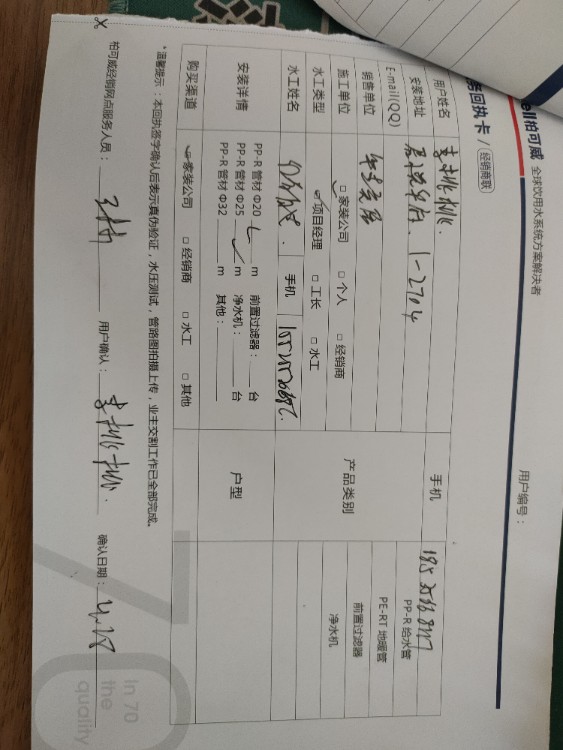 ell柏可威 全球饮用水系统方案解决者
务回执卡 / 经销商联
用户编号：
用户姓名 李桃桃 手机
安装地址 1-2704
E-mail(QQ)
销售单位
施工单位 □家装公司 □个人 □经销商
水工类型 □项目经理 □工长 □水工
水工姓名 手机
产品类别 PP-R 给水管
PE-RT 地暖管
前置过滤器
净水机
安装详情 PP-R 管材 Φ20 m 前置过滤器： 台
PP-R 管材 Φ25 m 净水机： 台
PP-R 管材 Φ32 m 其他：
户型
购买渠道 □家装公司 □经销商 □水工 □其他
*温馨提示：本回执签字确认后表示真伪验证，水压测试，管路图拍摄上传，业主交割工作已全部完成。
柏可威经销网点服务人员： 用户确认：李桃桃 确认日期：
In 70
the
quality